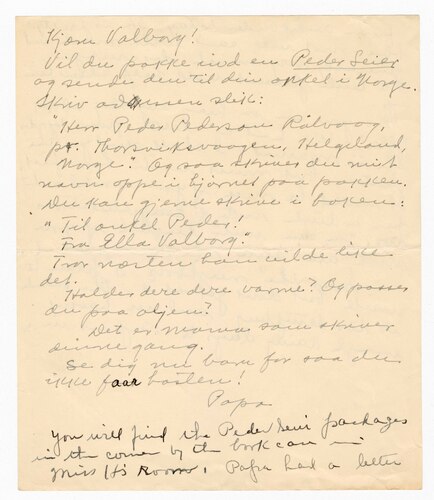 Kjære Valborg!
Vil du pakke ind en Peder Seier
og sende den til din onkel i Norge.
Skriv adressen slik:
"Herr Peder Pederson Rölvaag,
pr. Thorsviksvaagen, Helgeland,
Norge." Og saa skriver du mit
navn oppe i hjörnet paa pakken.
Du kan gjerne skrive i boken:
"Til onkel Peder!
Fra Ella Valborg."
Tror næsten han vilde like
det.
Holder dere dere varme? Og passer
du paa oljen?
Det er mama som skriver
denne gang.
Se dig nu bare for saa du
ikke faar hosten!
Papa
You will find the Peder Seier packages
in the corner by the bookcase in
Miss H's Room. Papa had a letter